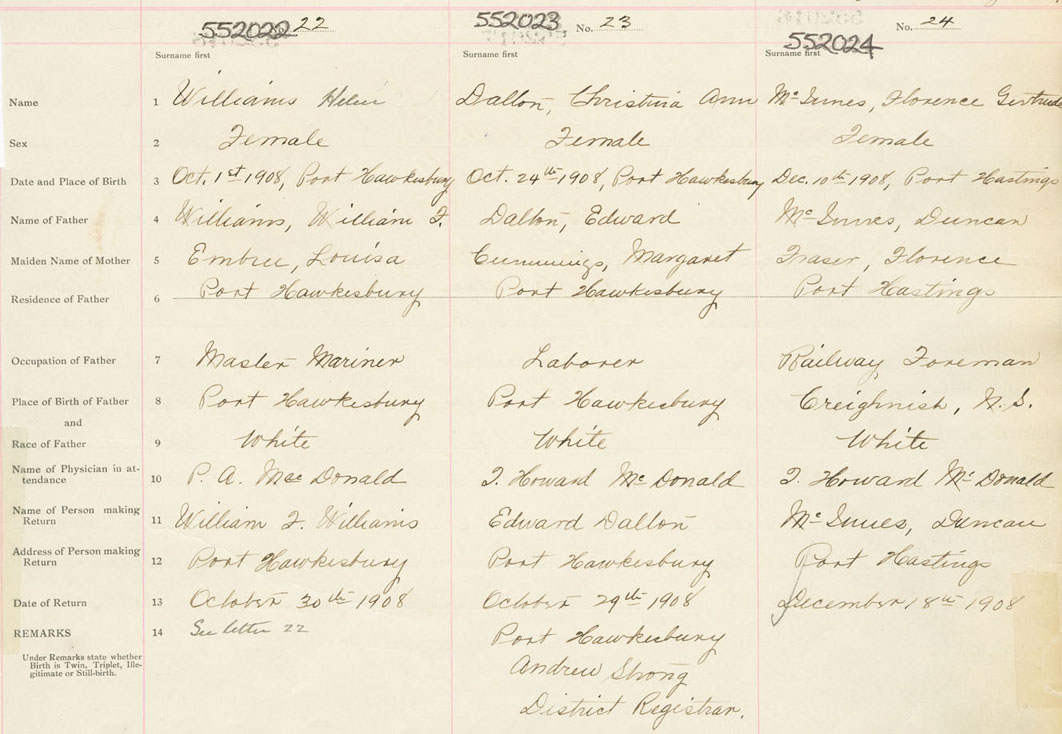 552022 No. 22 552023 No. 23 552024 No. 24
Surname first Surname first Surname first
Name 1 Williams Helen Dalton, Christina Ann McInnes, Florence Gertrude
Sex 2 Female Female Female
Date and Place of Birth 3 Oct. 1st 1908, Port Hawkesbury Oct. 24th 1908, Port Hawkesbury Dec. 10th 1908, Port Hastings
Name of Father 4 Williams, William F. Dalton, Edward McInnes, Duncan
Maiden Name of Mother 5 Embree, Louisa Cummings, Margaret Fraser, Florence
Residence of Father 6 Port Hawkesbury Port Hawkesbury Port Hastings
Occupation of Father 7 Master Mariner Laborer Railway Foreman
Place of Birth of Father 8 Port Hawkesbury Port Hawkesbury Creighnish, N.S.
and
Race of Father 9 White White White
Name of Physician in at-
tendance 10 P. A. MacDonald J. Howard McDonald J. Howard McDonald
Name of Person making
Return 11 William F. Williams Edward Dalton McInnes, Duncan
Address of Person making
Return 12 Port Hawkesbury Port Hawkesbury Port Hastings
Date of Return 13 October 30th 1908 October 29th 1908 December 18th 1908
REMARKS 14 See letter 22 Port Hawkesbury
Under Remarks state whether
Birth is Twin, Triplet, Ille-
gitimate or Still-birth.
Andrew Strong
District Registrar.